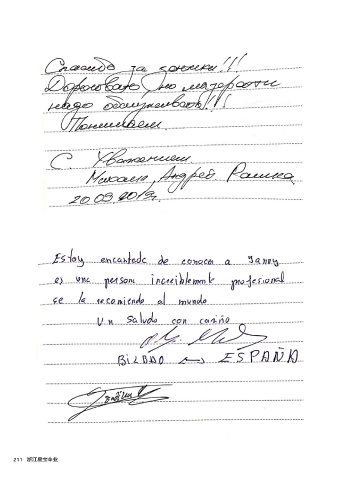 Спасибо за зонтики!!!
Дороговато, но мазерати
надо обслуживать!!!
Понимаем.
С Уважением
Михаил, Андрей, Рашка
20.09.2019г.
Estoy encantado de conocer a Janny
es una persona increiblemente profesional
se la recomiendo al mundo
Un saludo con cariño
BILBAO ESPAÑA
211 浙江星宝伞业